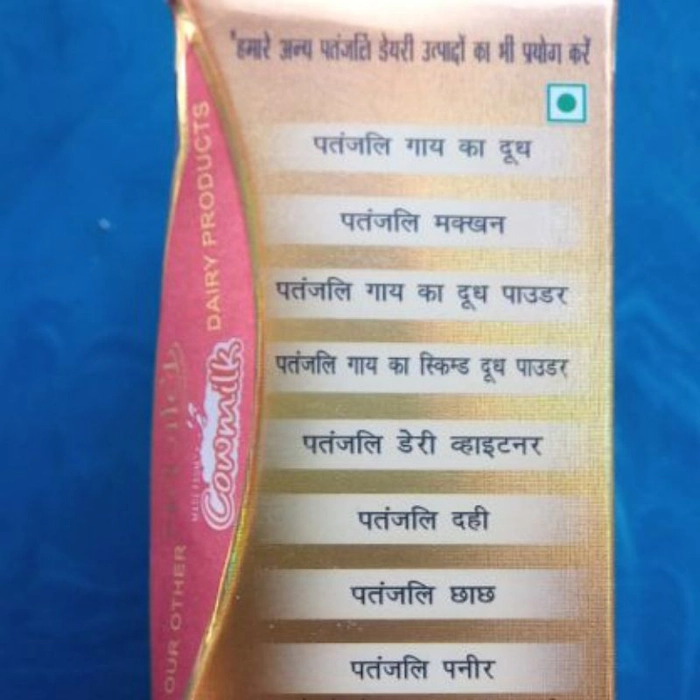 'हमारे अन्य पतंजलि डेयरी उत्पादों का भी प्रयोग करें
पतंजलि गाय का दूध
पतंजलि मक्खन
पतंजलि गाय का दूध पाउडर
पतंजलि गाय का स्किम्ड दूध पाउडर
पतंजलि डेरी व्हाइटनर
पतंजलि दही
पतंजलि छाछ
पतंजलि पनीर
OUR OTHER
MADE FROM
Cowmilk
DAIRY PRODUCTS